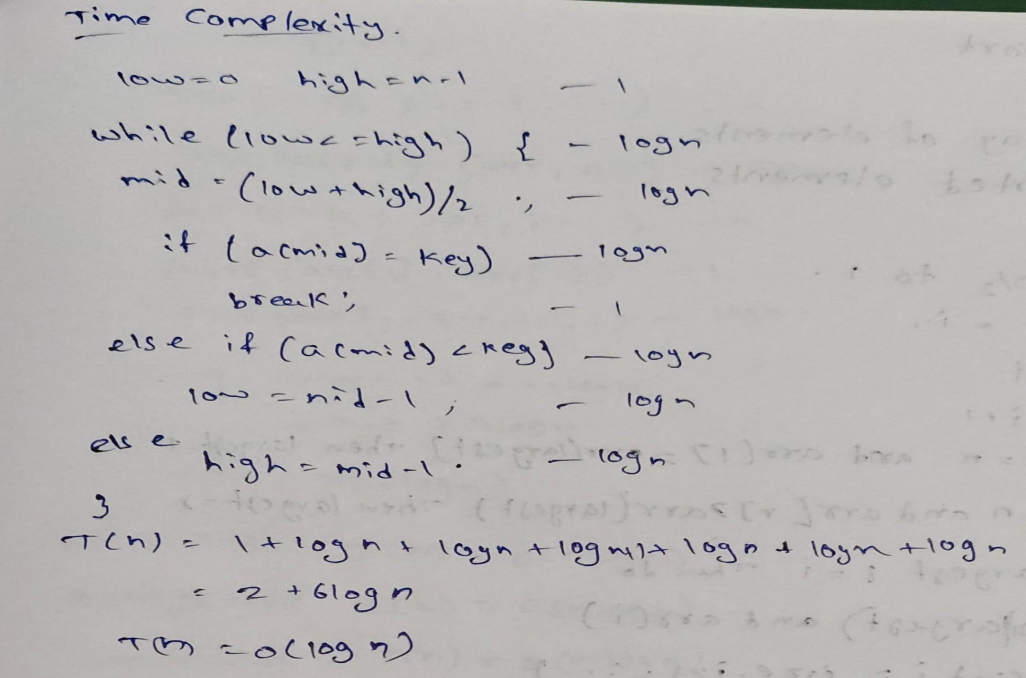 Time Complexity.
low=0 high=n-1 - 1
while (low<=high) { - logn
mid = (low+high)/2 ; - logn
if (a[mid] = key) - logn
break; - 1
else if (a[mid] < key) - logn
low = mid-1 ; - logn
else
high = mid-1. - logn
}
T(n) = 1+logn + logn + logn+1+ logn + logn + logn
= 2 + 6logn
T(n) = O(log n)